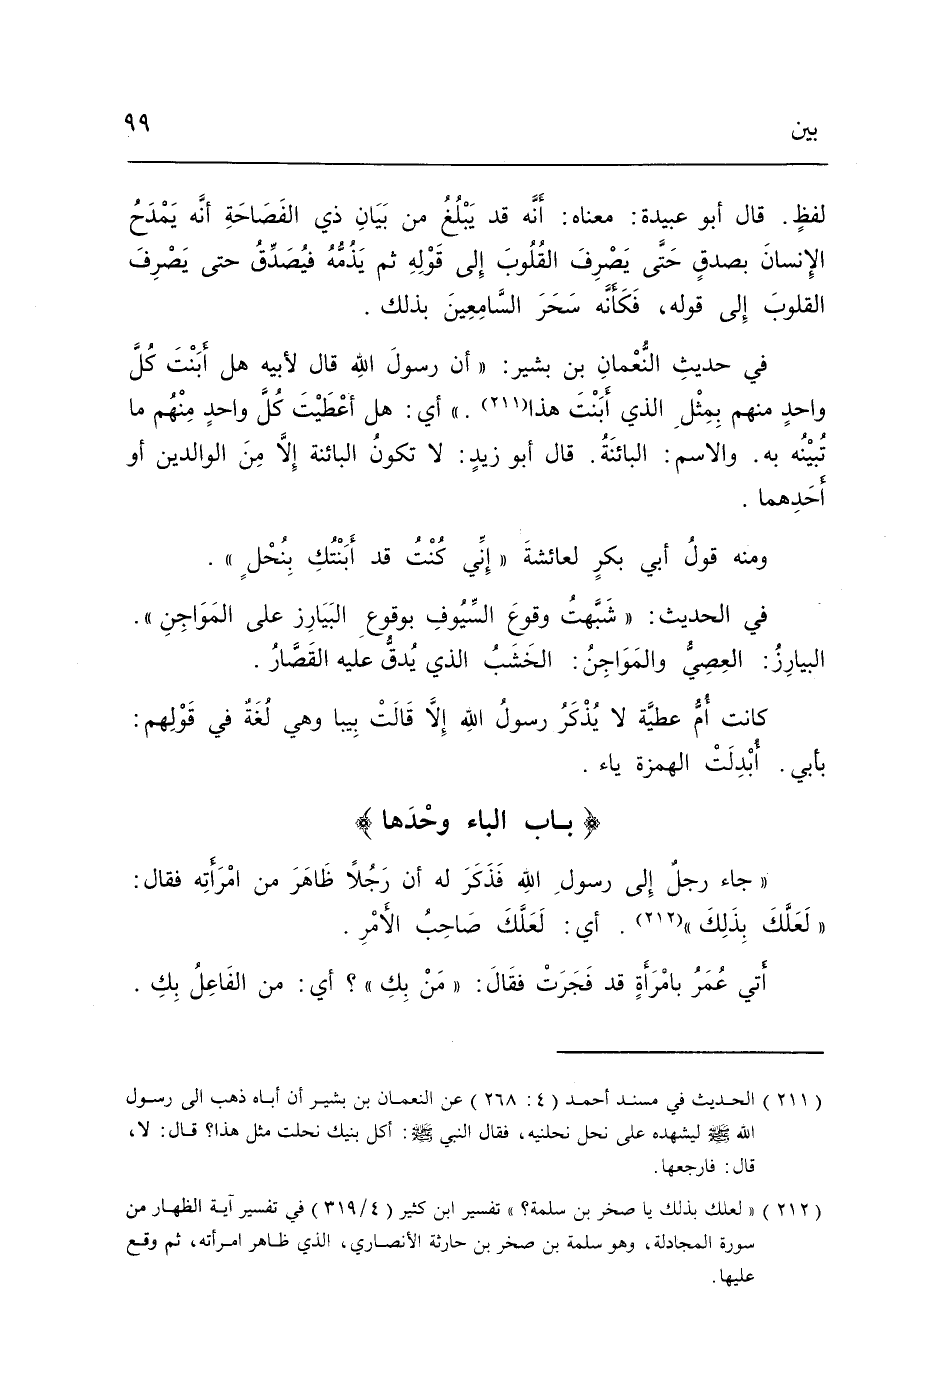 بين ٩٩
لفظٍ. قال أبو عبيدة: معناه: أَنَّه قد يَبْلُغُ من بَيَانِ ذي الفَصَاحَةِ أنَّه يَمْدَحُ
الإِنسانَ بصدقٍ حَتَّى يَصْرِفَ القُلُوبَ إِلى قَوْلِهِ ثم يَذُمُّهُ فيُصَدِّقُ حتى يَصْرِفَ
القلوبَ إِلى قوله، فَكَأَنَّه سَحَرَ السَّامِعِينَ بذلك .
في حديثِ النُّعْمانِ بن بشير: « أن رسولَ اللهِ قال لأبيه هل أَبَنْتَ كُلَّ
واحدٍ منهم بِمِثْلِ الذي أَبَنْتَ هذا(٢١١) .» أي: هل أعْطَيْتَ كُلَّ واحدٍ مِنْهُم ما
تُبْيْنُه به. والاسم: البائنَةُ. قال أبو زيدٍ: لا تكونُ البائنة إِلاَّ مِنَ الوالدين أو
أَحَدِهما .
ومنه قولُ أبي بكرٍ لعائشةَ « إِنِّي كُنْتُ قد أَبَنْتُكِ بِنُحْلٍ » .
في الحديث: « شَبَّهتُ وقوعَ السِّيُوفِ بوقوعِ البَيَارِزِ على المَوَاجِنِ ».
البيارِزُ: العِصِيُّ والمَوَاجِنُ: الخَشَبُ الذي يُدقُّ عليه القَصَّارُ .
كانت أُمُّ عطيَّة لا يُذْكَرُ رسولُ اللهِ إِلاَّ قَالَتْ بِيبا وهي لُغَةٌ في قَوْلِهم:
بأبي. أُبْدِلَتْ الهمزة ياء .
﴿ بـاب الباء وحْدَها ﴾
« جاء رجلٌ إِلى رسولِ اللهِ فَذَكَرَ له أن رَجُلاً ظَاهَرَ من امْرَأَتِه فقال:
« لَعَلَّكَ بِذَلِكَ »(٢١٢) . أي: لَعَلَّكَ صَاحِبُ الأَمْرِ .
أُتي عُمَرُ بامْرَأَةٍ قد فَجَرَتْ فقَالَ: « مَنْ بِكِ » ؟ أي: من الفَاعِلُ بِكِ .
( ٢١١ ) الحديث في مسند أحمد ( ٤: ٢٦٨ ) عن النعمـان بن بشيـر أن أبـاه ذهب الى رسـول
الله ﷺ ليشهده على نحل نحلنيه، فقال النبي ﷺ: أكل بنيك نحلت مثل هذا؟ قـال: لا،
قال: فارجعها.
( ٢١٢ ) « لعلك بذلك يا صخر بن سلمة؟ » تفسير ابن كثير ( ٣١٩/٤ ) في تفسير آيـة الظهـار من
سورة المجادلة، وهو سلمة بن صخر بن حارثة الأنصـاري، الذي ظـاهر امـرأته، ثم وقـع
عليها.